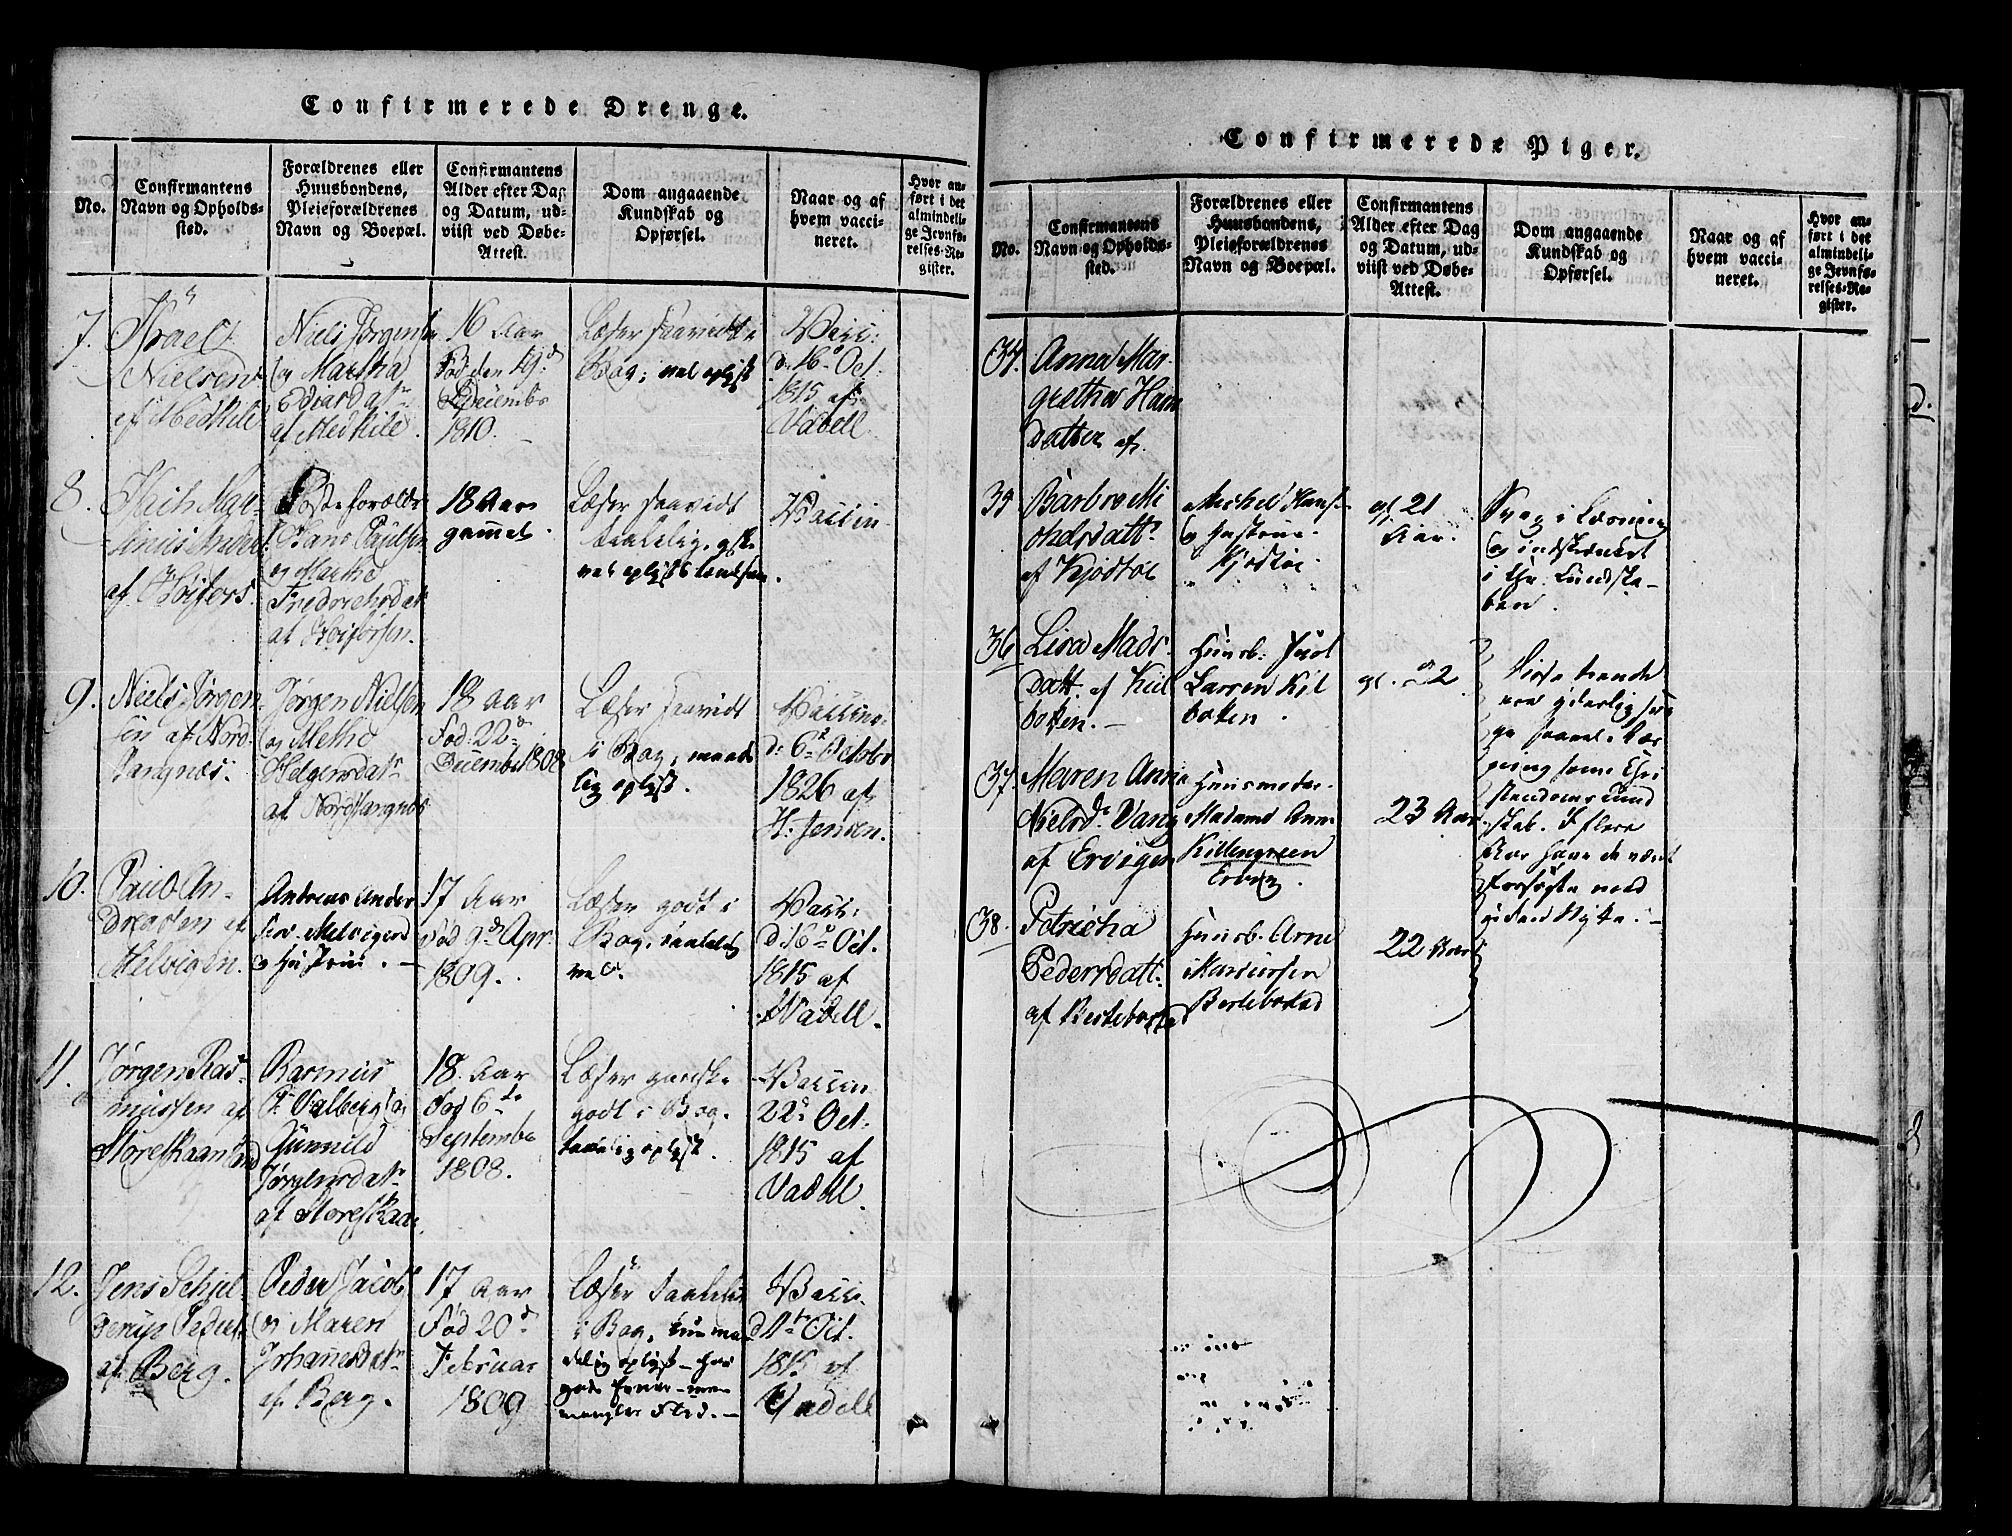 Confirmerede Drenge.
No.
Confirmantens
Navn og Opholds-
sted.
Forældrenes eller
Huusbondens,
Pleieforældrenes
Navn og Boepæl.
Confirmantens
Alder efter Dag
og Datum, ud-
viist ved Døbe-
Attest.
Dom angaaende
Kundskab og
Opførsel.
Naar og af
hvem vacci-
neret.
Hvor an-
ført i det
almindeli-
ge Jevnfø-
relses-Re-
gister.
7.
Israel
Nielsen
af Medkile
Niels Jørgens
og Martha
Edvardat
af Medkile.
16 Aar
Fød den 19d
Decembr
1810.
Læser saavidt i
Bog; vel oplyst
Vacc:
d. 16 Oct.
1815 af
Vadell
8.
af Høifors.
Fosterforældre
Hans Paulsen
og Marthe
Fredrichsdat
af Høiforsen.
18 Aar
gammel.
Læser saavidt
taalelig,
vel oplyst
Vaccin
9.
Niels Jørgen
sen af Nord-
Sangnes.
Jørgen Nielsen
og Methe
Helgersdat
af Nordsangnes
18 Aar
Fød: 22d
Decembr 1808
Læser saavidt
i Bog, maade
lig oplyst.
Vaccine
d. 6 Octobr
1826 af
H. Jensen.
10.
Paul An-
dreasen af
Melvigen.
Andreas Ander
sen Melvigen
og Hustrue. -
17 Aar
Fød 9d Apr.
1809.
Læser godt i
Bog, taalelig
vel.
Vacc:
d. 16 Oct.
1815 af
Vadell.
11.
Jørgen Ras-
mussen af
Storeskaanland
Rasmus
P. Valberg og
Gunnild
Jørgensdat
af Storeskaa
18. Aar
Fød 6te
Septembr
1808.
Læser ganske
godt i Bog.
taalelig oplyst.
Vaccin
22d Oct.
1815 af
Vadell
12.
Jens Schjel-
derup Peders
af Berg.
Peder Jacobs
og Maren
Johannesdat
af Berg.
17 Aar
Fød 20d
Februar
1809
Læser taalelig
i Bog, kun maa
delig oplyst - har
gode Evner - men
mangler Flid. -
Vacc.
d. 1te Oct.
1815 af
Vadell
Confirmerede Piger.
No.
Confirmantens
Navn og Opholds-
sted.
Forældrenes eller
Huusbondens,
Pleieforældrenes
Navn og Boepæl.
Confirmantens
Alder efter Dag
og Datum, ud-
viist ved Døbe-
Attest.
Dom angaaende
Kundskab og
Opførsel.
Naar og af
hvem vacci-
neret.
Hvor an-
ført i det
almindeli-
ge Jevnfø-
relses-Re-
gister.
34.
Anna Mar-
gretha Hans
datter af
35
Barbro Mi
chelsdatt
af Kjødtøe
Michel Hans
og Hustrue
Kjødtøe
gl. 21
Aar.
Svag i Læsning
og indskrænket
i Chr. Kundska-
ben.
36
Lisa Mads-
datt. af Kiil
boten. -
Huusb. Juel
Larsen Kil
boten.
gl. 22
37
Maren Anna
Nielsd. Vang
af Ervigen
Huusmoder
Madame Anne
Killengreen
Ervig.
23 Aar
Disse trende
ere yderlig sva
ge saavel i Læs
ning som Chri
stendomskund
skab. I flere
Aar have de været
Forsøgte med
uden Nytte. -
38.
Petricha
Pedersdatt
af Bertebostad
Huusb. Arne
Mariussen
Bertebostad
22 Aar